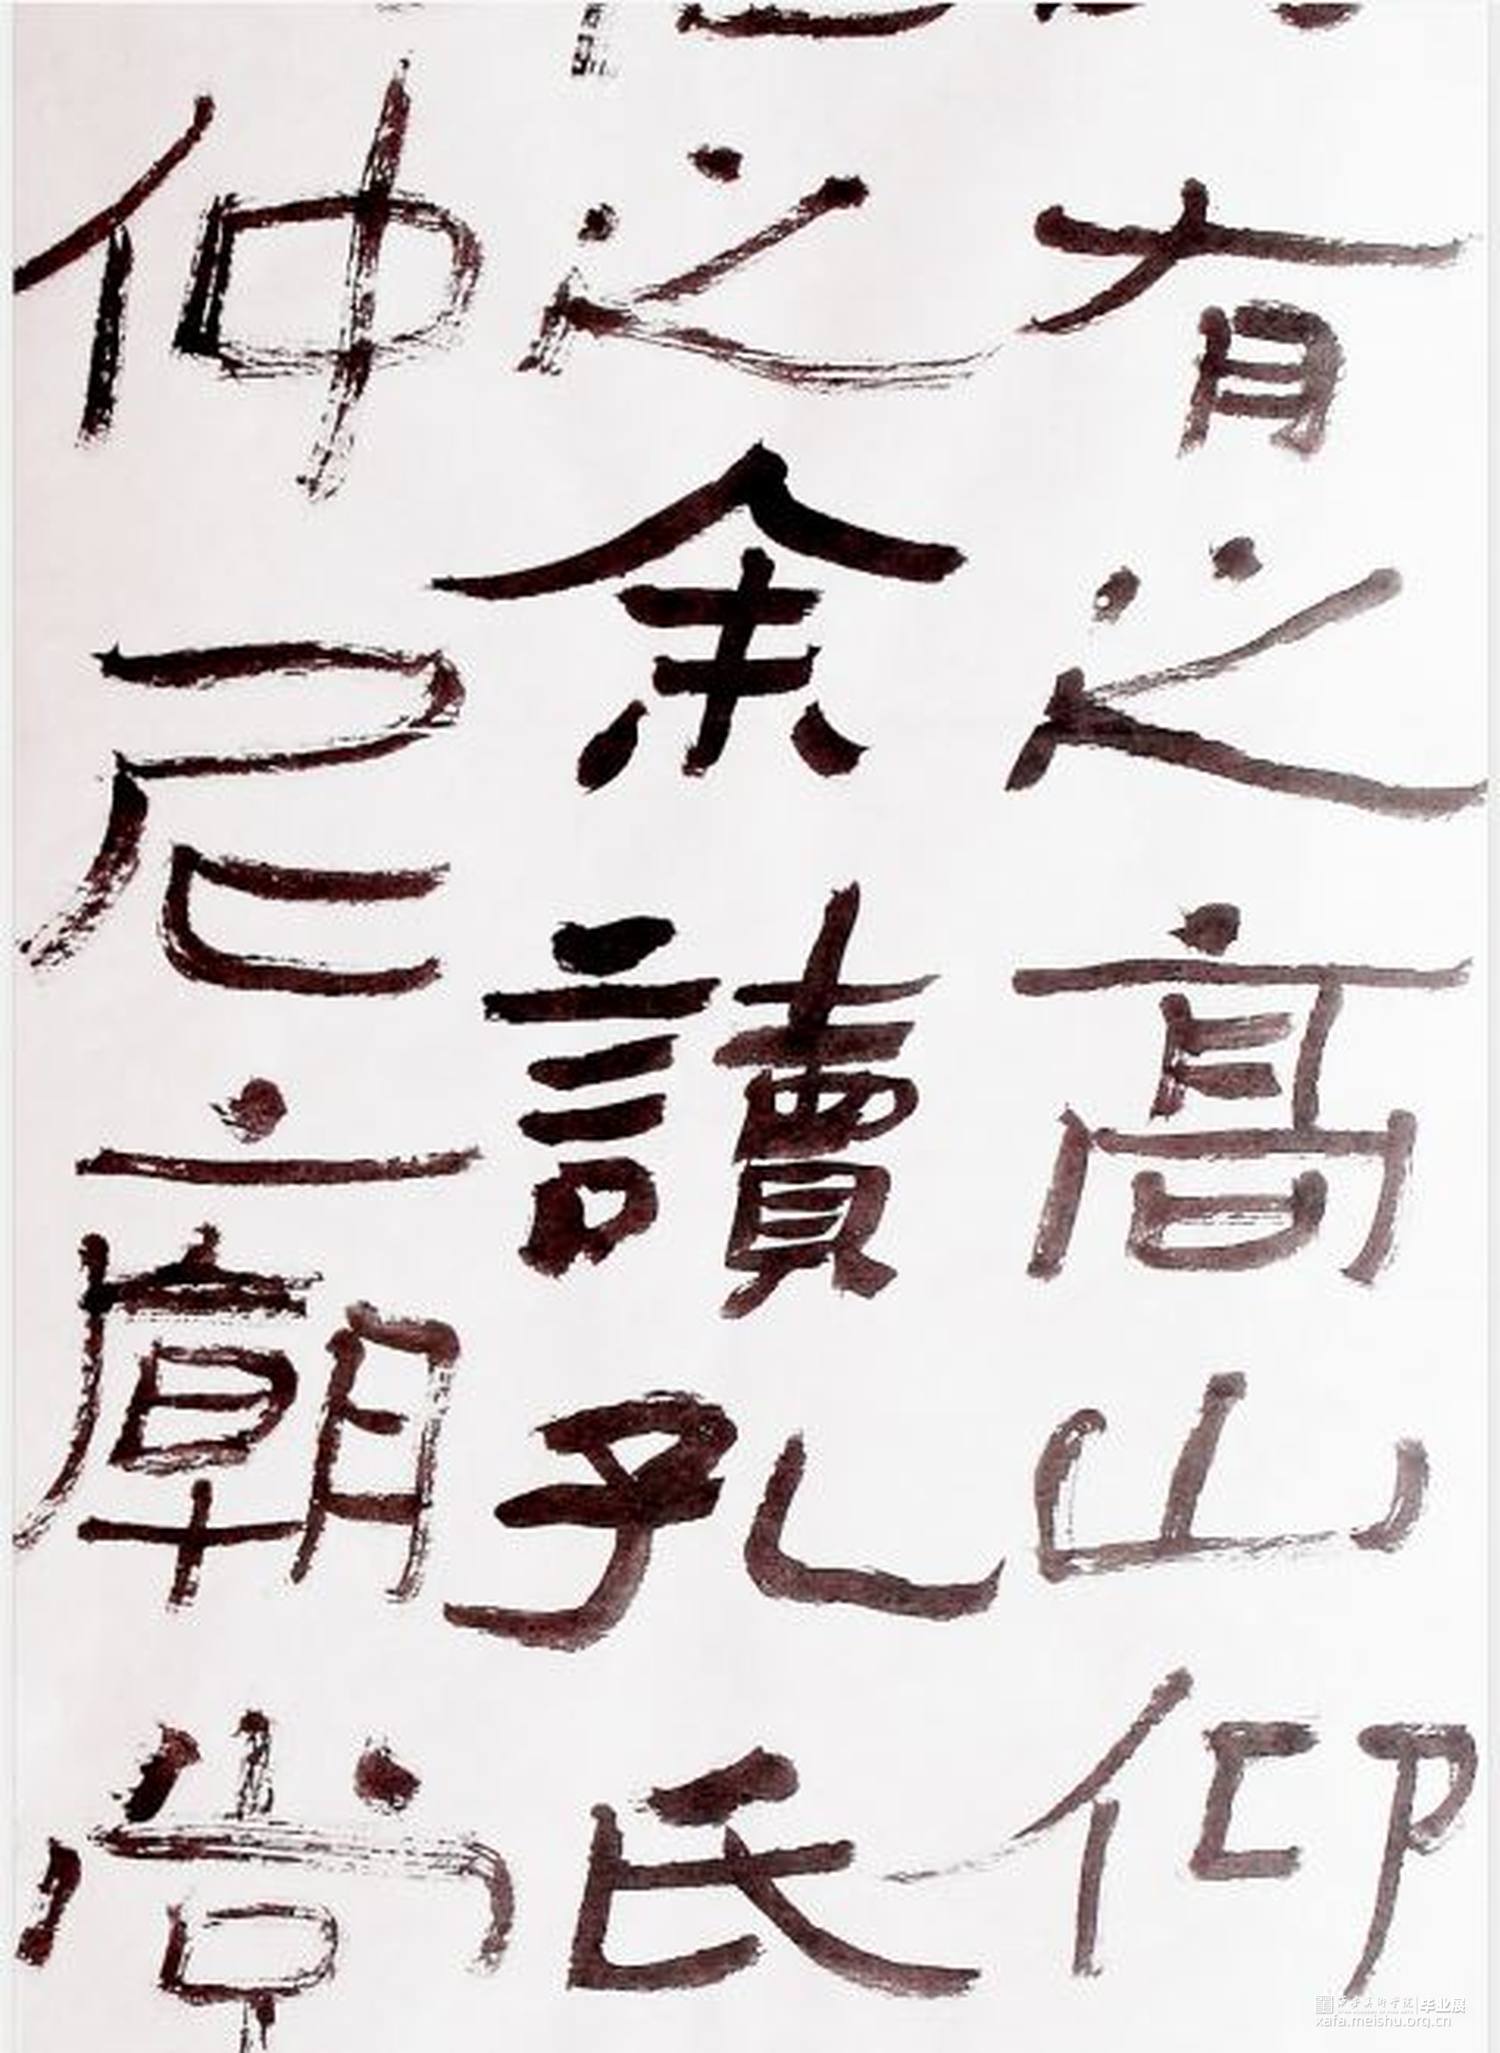 有之高山仰
之余讀孔氏
仲尼廟堂
西安美术学院 毕业展
xafa.meishu.org.cn